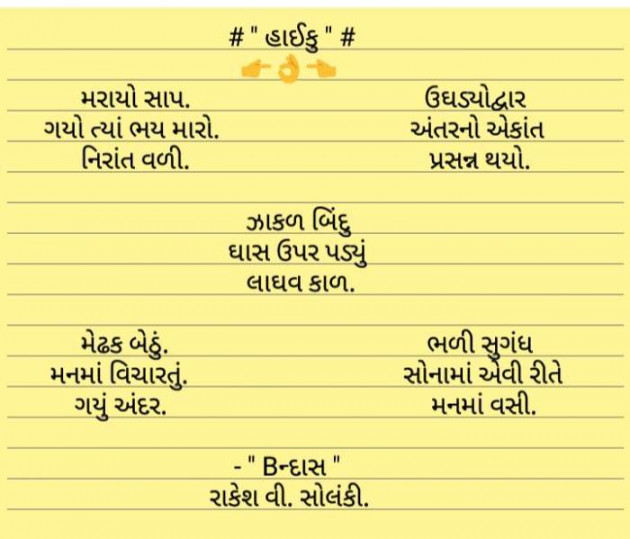 # " હાઈકુ " #
મરાયો સાપ.
ગયો ત્યાં ભય મારો.
નિરાંત વળી.
ઉઘડ્યોદ્વાર
અંતરનો એકાંત
પ્રસન્ન થયો.
ઝાકળ બિંદુ
ઘાસ ઉપર પડ્યું
લાઘવ કાળ.
મેઢક બેઠું.
મનમાં વિચારતું.
ગયું અંદર.
ભળી સુગંધ
સોનામાં એવી રીતે
મનમાં વસી.
- " Bન્દાસ "
રાકેશ વી. સોલંકી.